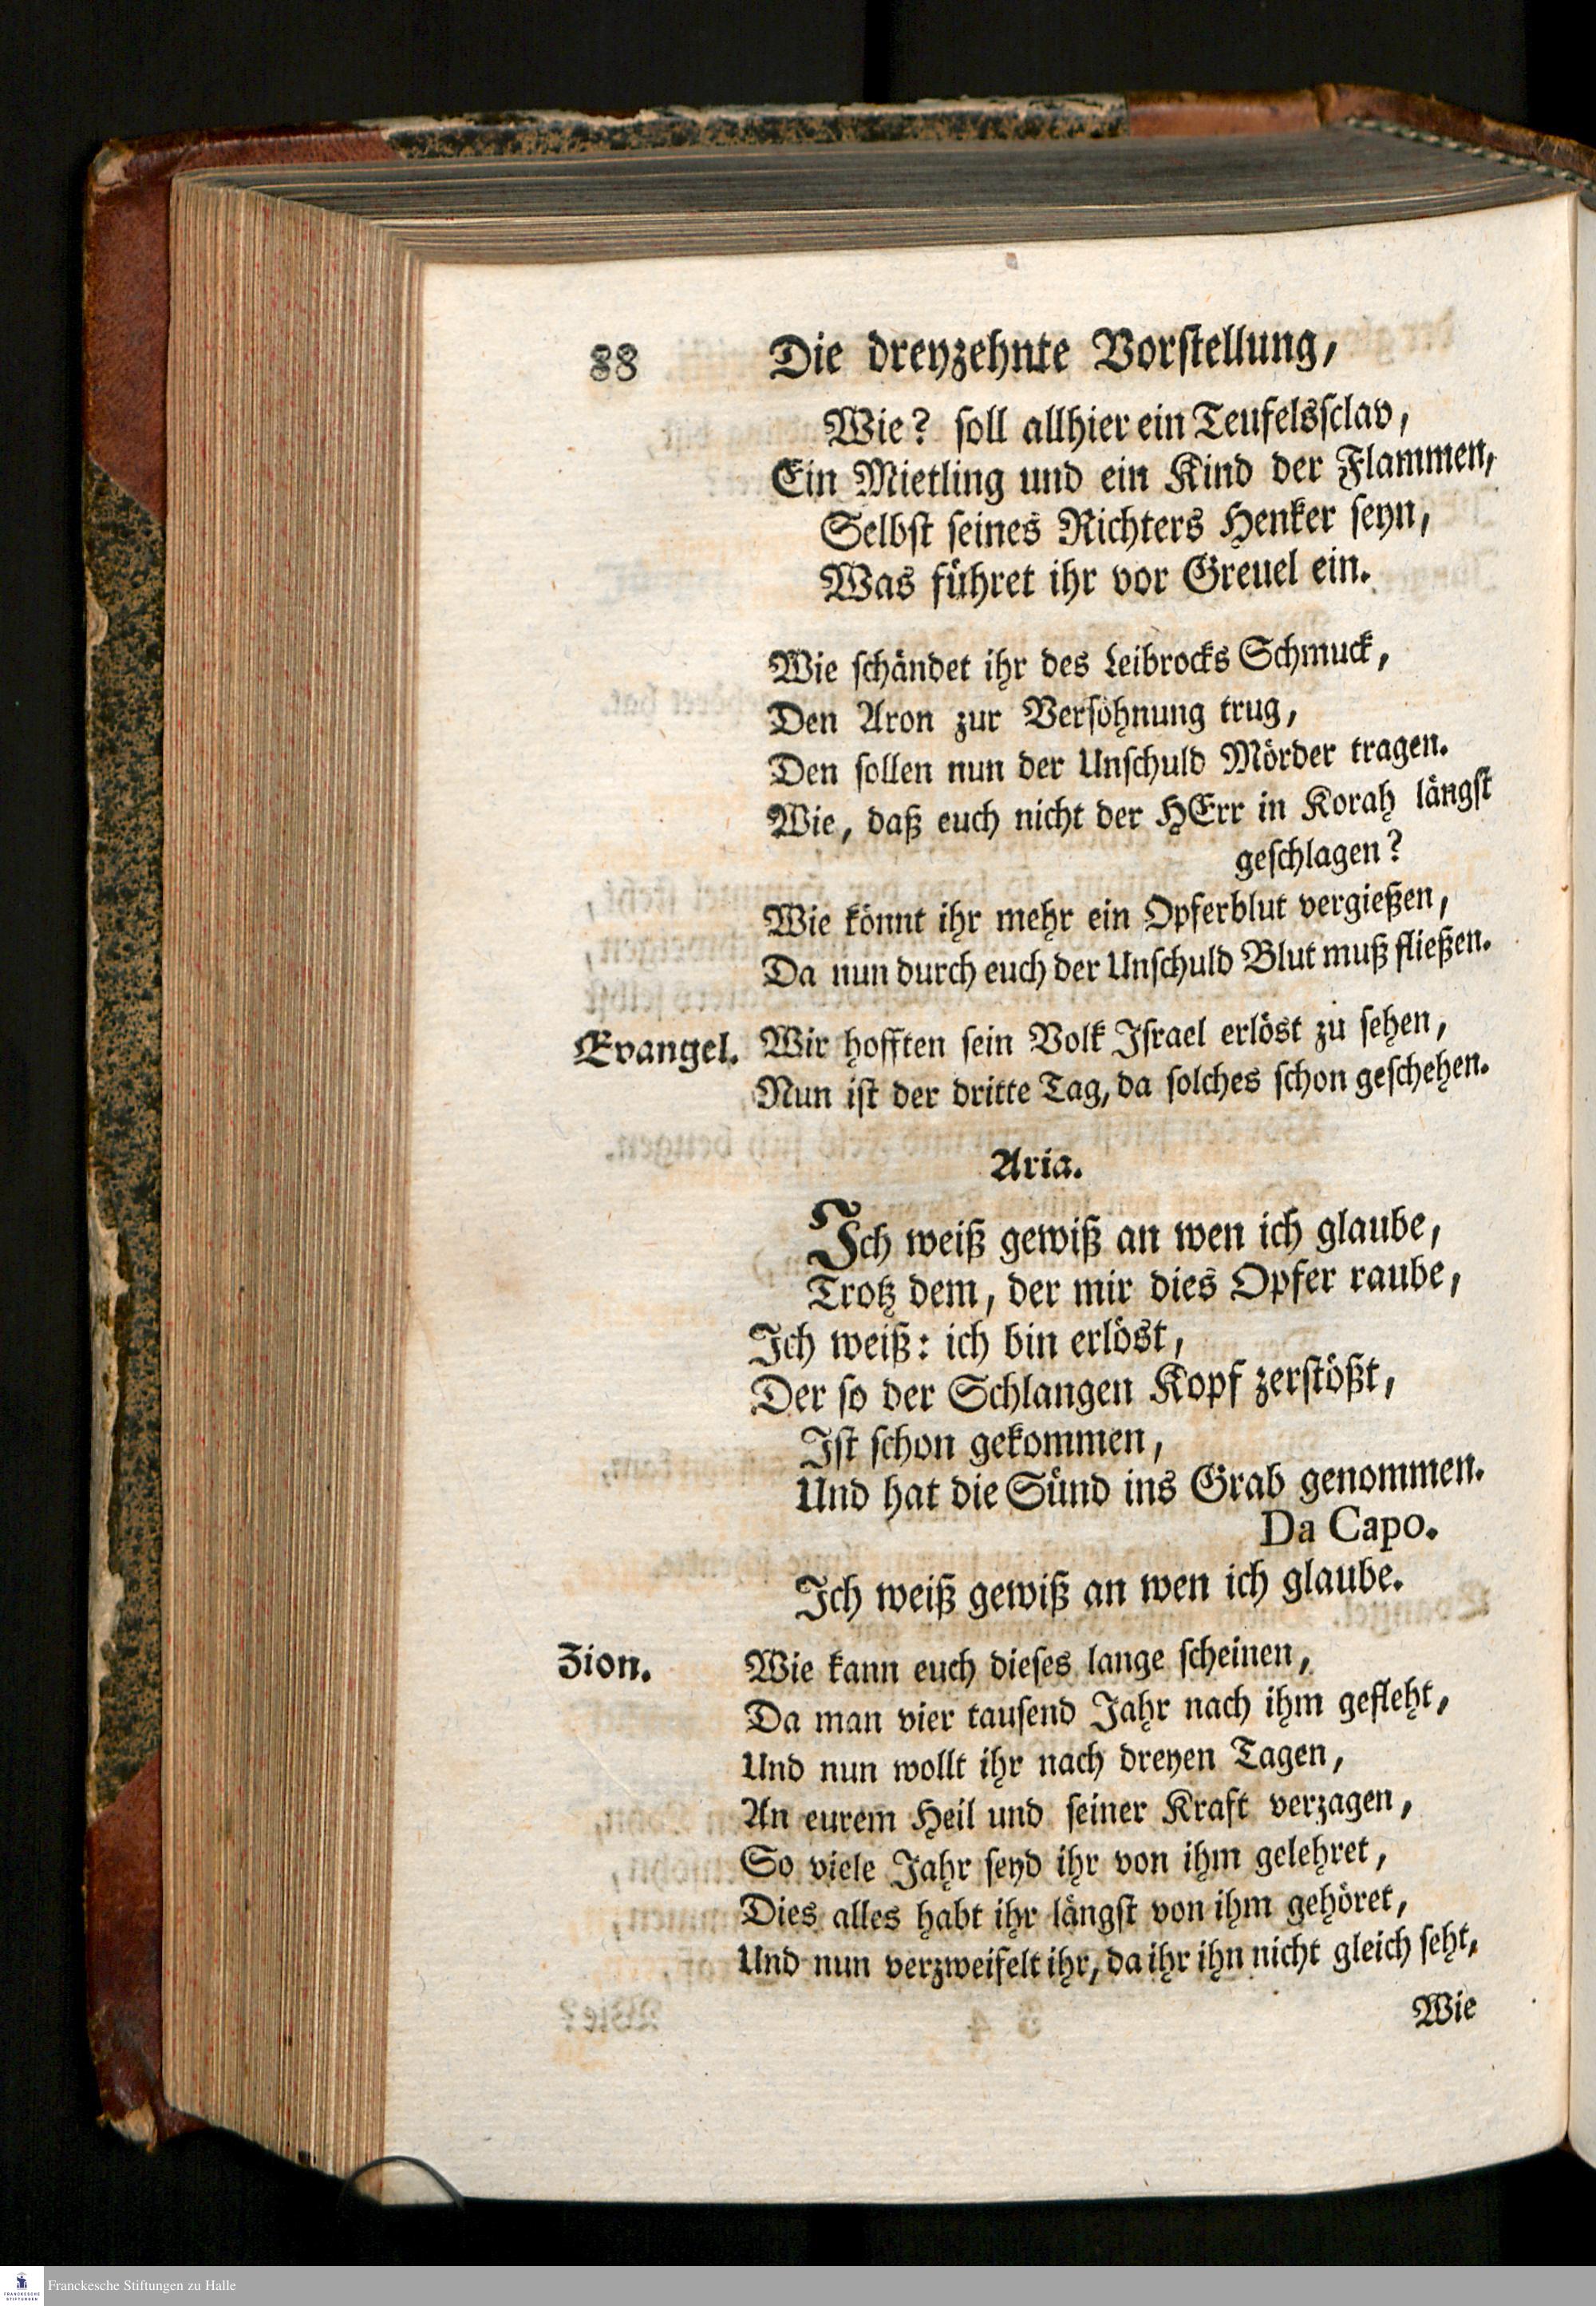 88 Die dreyzehnte Vorstellung,
Wie? soll allhier ein Teufelssclav,
Ein Mietling und ein Kind der Flammen,
Selbst seines Richters Henker seyn,
Was führet ihr vor Greuel ein.
Wie schändet ihr des Leibrocks Schmuck,
Den Aron zur Versöhnung trug,
Den sollen nun der Unschuld Mörder tragen.
Wie, daß euch nicht der HErr in Korah längst
geschlagen?
Wie könnt ihr mehr ein Opferblut vergießen,
Da nun durch euch der Unschuld Blut muß fließen.
Evangel. Wir hofften sein Volk Israel erlöst zu sehen,
Nun ist der dritte Tag, da solches schon geschehen.
Aria.
Ich weiß gewiß an wen ich glaube,
Trotz dem, der mir dies Opfer raube,
Ich weiß: ich bin erlöst,
Der so der Schlangen Kopf zerstößt,
Ist schon gekommen,
Und hat die Sünd ins Grab genommen.
Da Capo.
Ich weiß gewiß an wen ich glaube.
Zion. Wie kann euch dieses lange scheinen,
Da man vier tausend Jahr nach ihm gefleht,
Und nun wollt ihr nach dreyen Tagen,
An eurem Heil und seiner Kraft verzagen,
So viele Jahr seyd ihr von ihm gelehret,
Dies alles habt ihr längst von ihm gehöret,
Und nun verzweifelt ihr, da ihr ihn nicht gleich seht,
Wie
Franckesche Stiftungen zu Halle